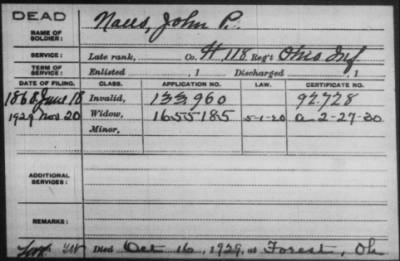 DEAD
NAME OF SOLDIER: Naus, John P.
SERVICE: Late rank, Co. H 118 Reg't Ohio Inf
TERM OF SERVICE: Enlisted , 1 Discharged , 1
DATE OF FILING. CLASS. APPLICATION NO. LAW. CERTIFICATE NO.
1868 June 18 Invalid, 133960 92.728
1929 Nov. 20 Widow, 1655185 5-1-20 a 2-27-30
Minor,
ADDITIONAL SERVICES:
REMARKS:
Died Oct 16, 1929, at Forest, Oh